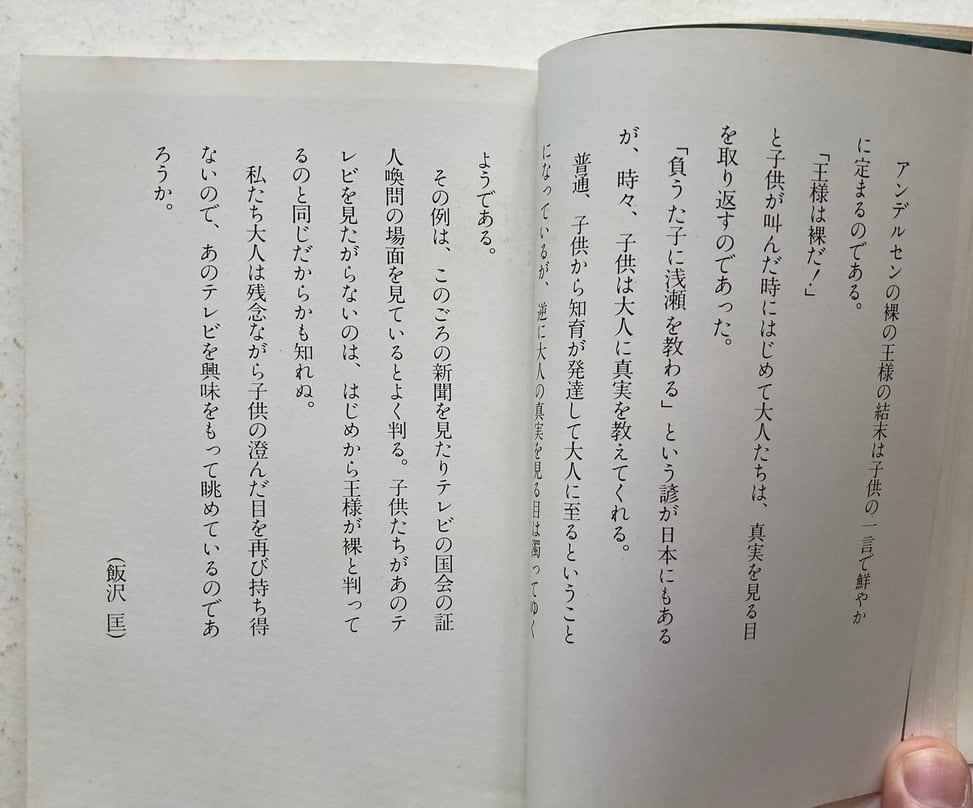 アンデルセンの裸の王様の結末は子供の一言で鮮やか
に定まるのである。
「王様は裸だ！」
と子供が叫んだ時にはじめて大人たちは、真実を見る目
を取り返すのであった。
「負うた子に浅瀬を教わる」という諺が日本にもある
が、時々、子供は大人に真実を教えてくれる。
普通、子供から知育が発達して大人に至るということ
になっているが、逆に大人の真実を見る目は濁ってゆく
ようである。
その例は、このごろの新聞を見たりテレビの国会の証
人喚問の場面を見ているとよく判る。子供たちがあのテ
レビを見たがらないのは、はじめから王様が裸と判って
るのと同じだからかも知れぬ。
私たち大人は残念ながら子供の澄んだ目を再び持ち得
ないので、あのテレビを興味をもって眺めているのであ
ろうか。
（飯沢　匡）